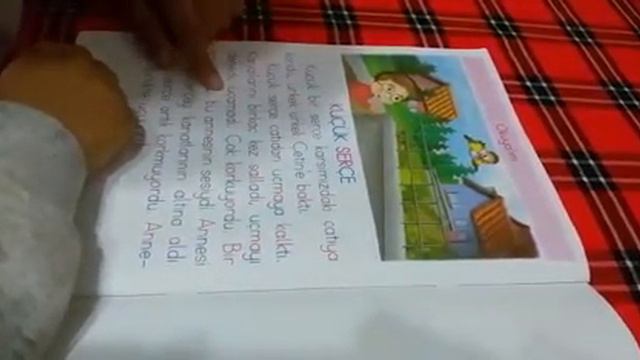 Okuyalım
KÜÇÜK SERÇE
Küçük bir serçe karşımızdaki çatıya
kondu. ürkek ürkek Çetin'e baktı.
Küçük serçe çatıdan uçmaya kalktı.
Kanatlarını birkaç kez salladı, uçmayı
uçamadı. Çok korkuyordu. Bir
annesinin sesiydi. Annesi
kanatlarının altına aldı.
artık korkmuyordu. Anne-